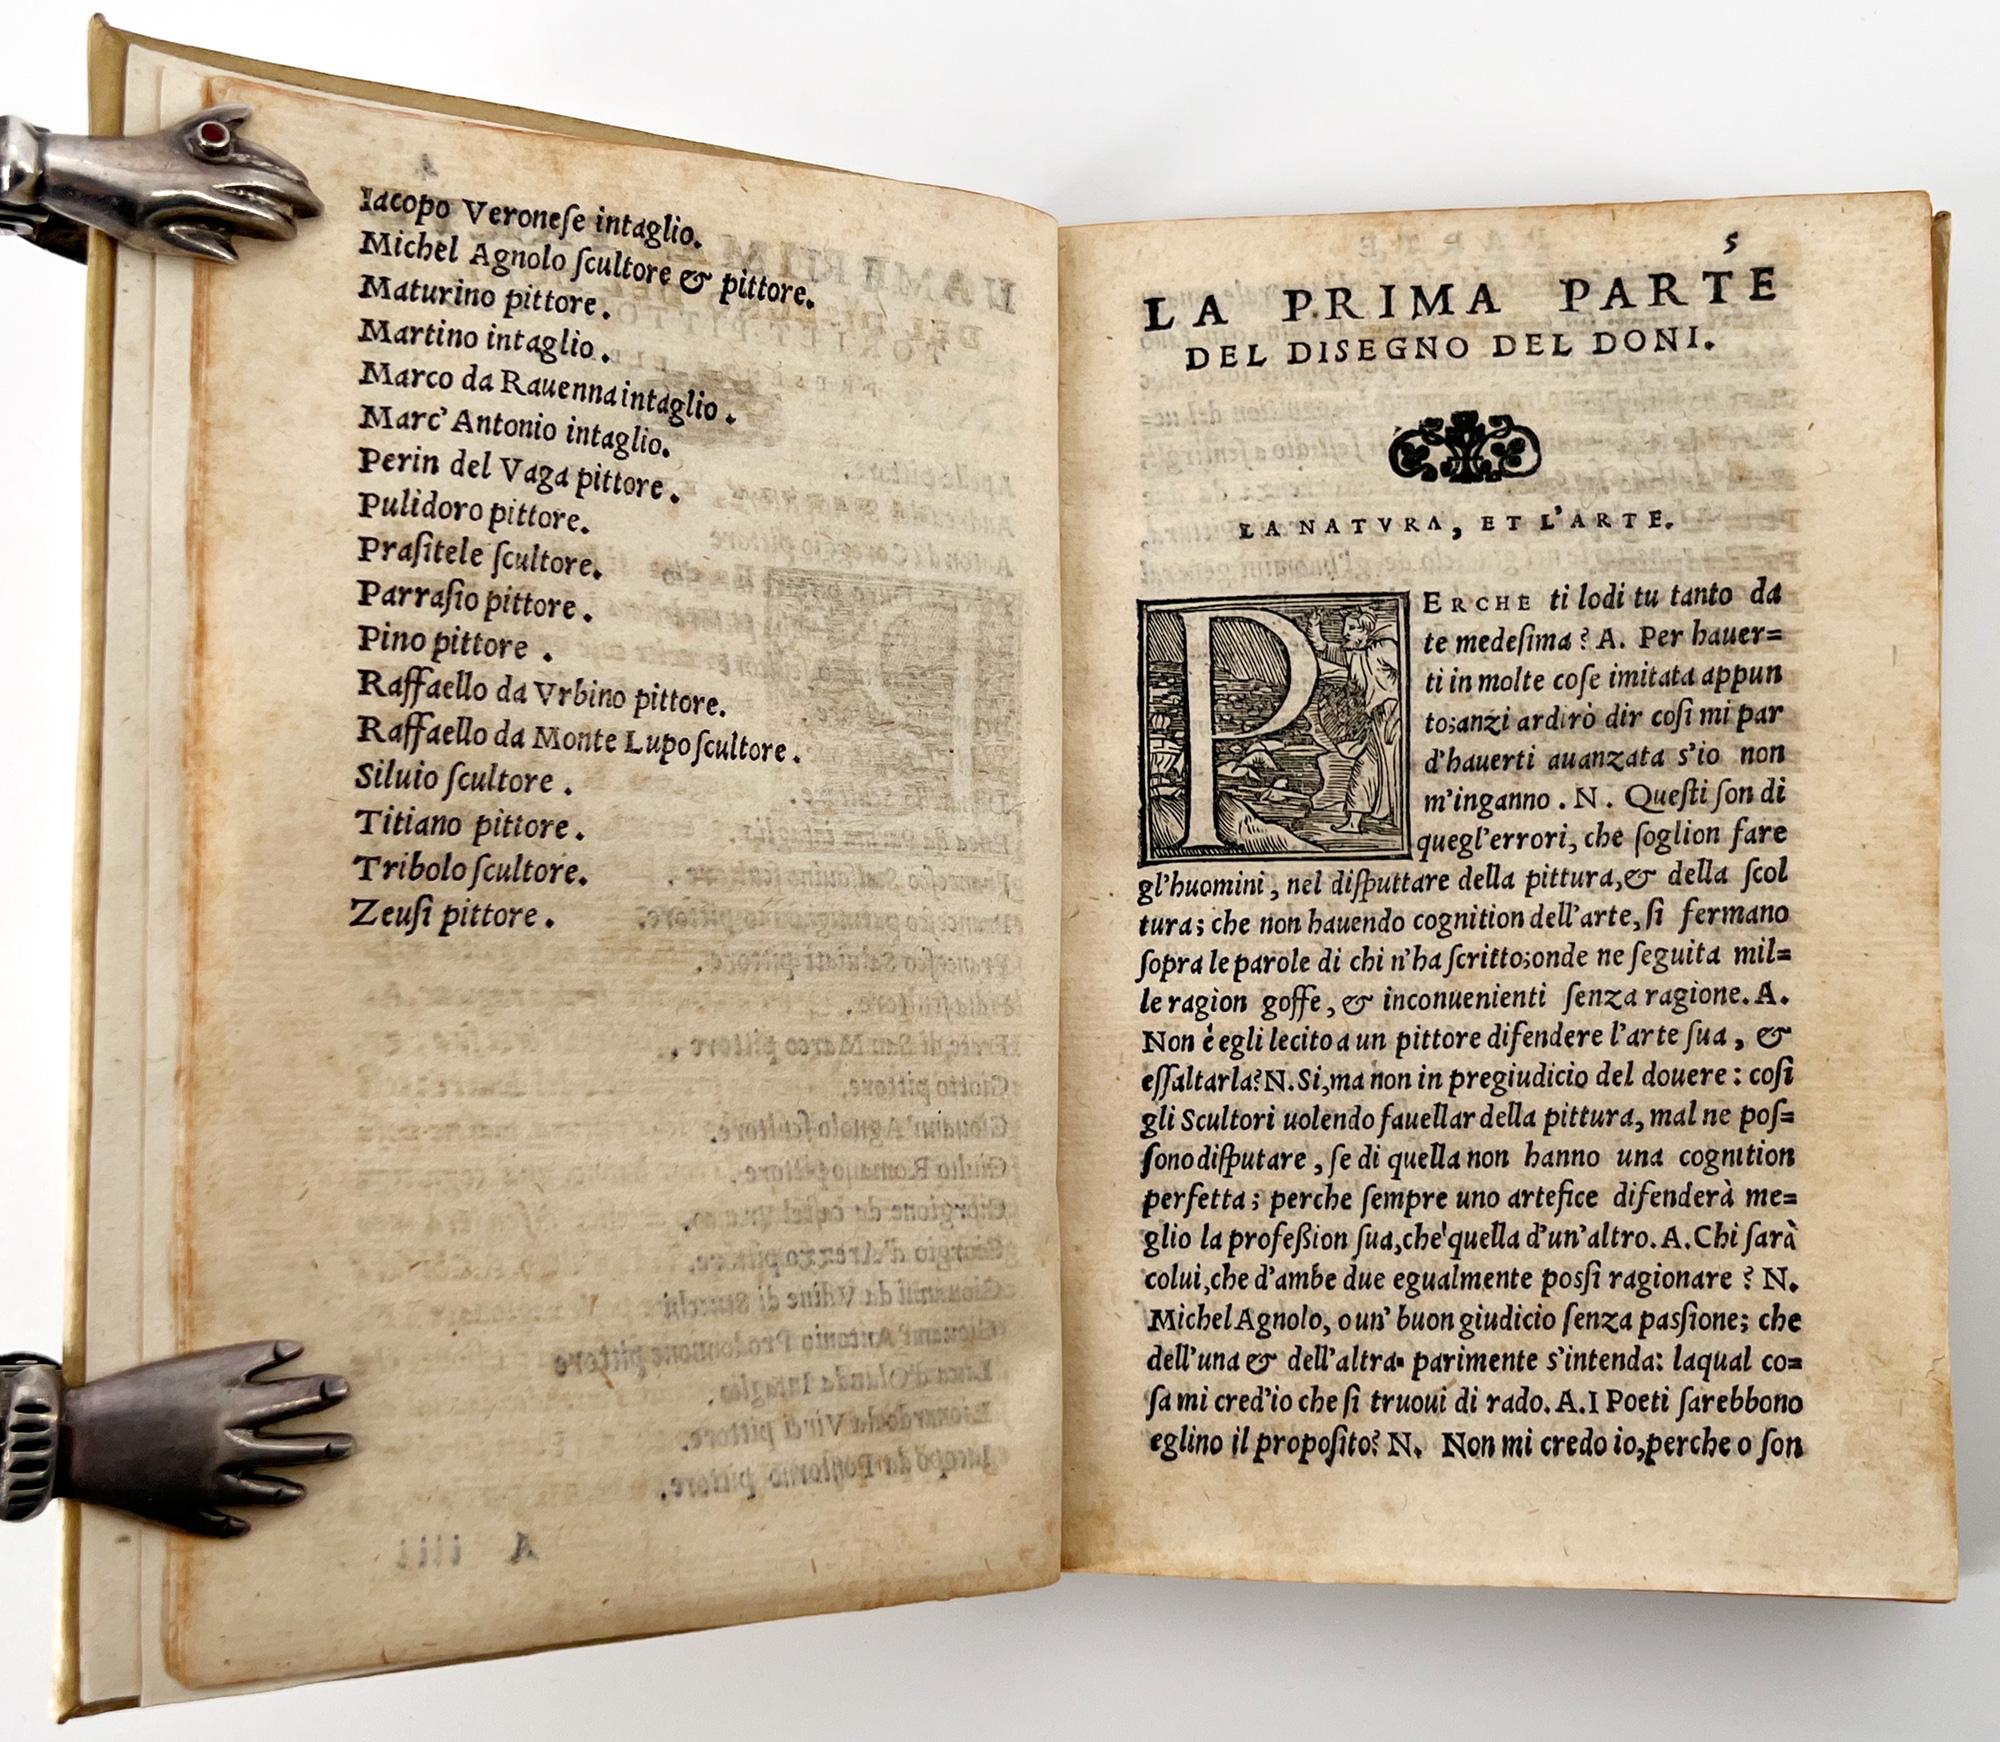 Iacopo Veroneſe intaglio.
Michel Agnolo ſcultore & pittore.
Maturino pittore.
Martino intaglio.
Marco da Rauenna intaglio.
Marc' Antonio intaglio.
Perin del Vaga pittore.
Pulidoro pittore.
Praſitele ſcultore.
Parraſio pittore.
Pino pittore.
Raffaello da Vrbino pittore.
Raffaello da Monte Lupo ſcultore.
Siluio ſcultore.
Titiano pittore.
Tribolo ſcultore.
Zeuſi pittore.
5
LA PRIMA PARTE
DEL DISEGNO DEL DONI.
LA NATVRA, ET L'ARTE.
PERCHE ti lodi tu tanto da
te medeſima? A. Per hauer=
ti in molte coſe imitata appun
to; anzi ardirò dir coſi mi par
d'hauerti auanzata s'io non
m'inganno. N. Queſti ſon di
quegl'errori, che ſoglion fare
gl'huomini, nel diſputtare della pittura, & della ſcol
tura; che non hauendo cognition dell'arte, ſi fermano
ſopra le parole di chi n'ha ſcritto; onde ne ſeguita mil=
le ragion goffe, & inconuenienti ſenza ragione. A.
Non è egli lecito a un pittore difendere l'arte ſua, &
eſſaltarla? N. Si, ma non in pregiudicio del douere: coſi
gli Scultori uolendo fauellar della pittura, mal ne poſ=
ſono diſputare, ſe di quella non hanno una cognition
perfetta; perche ſempre uno artefice difenderà me=
glio la profeßion ſua, che quella d'un'altro. A. Chi ſarà
colui, che d'ambe due egualmente poſſi ragionare? N.
Michel Agnolo, o un' buon giudicio ſenza paſſione; che
dell'una & dell'altra parimente s'intenda: laqual co=
ſa mi cred'io che ſi truoui di rado. A. I Poeti ſarebbono
eglino il propoſito? N. Non mi credo io, perche o ſon